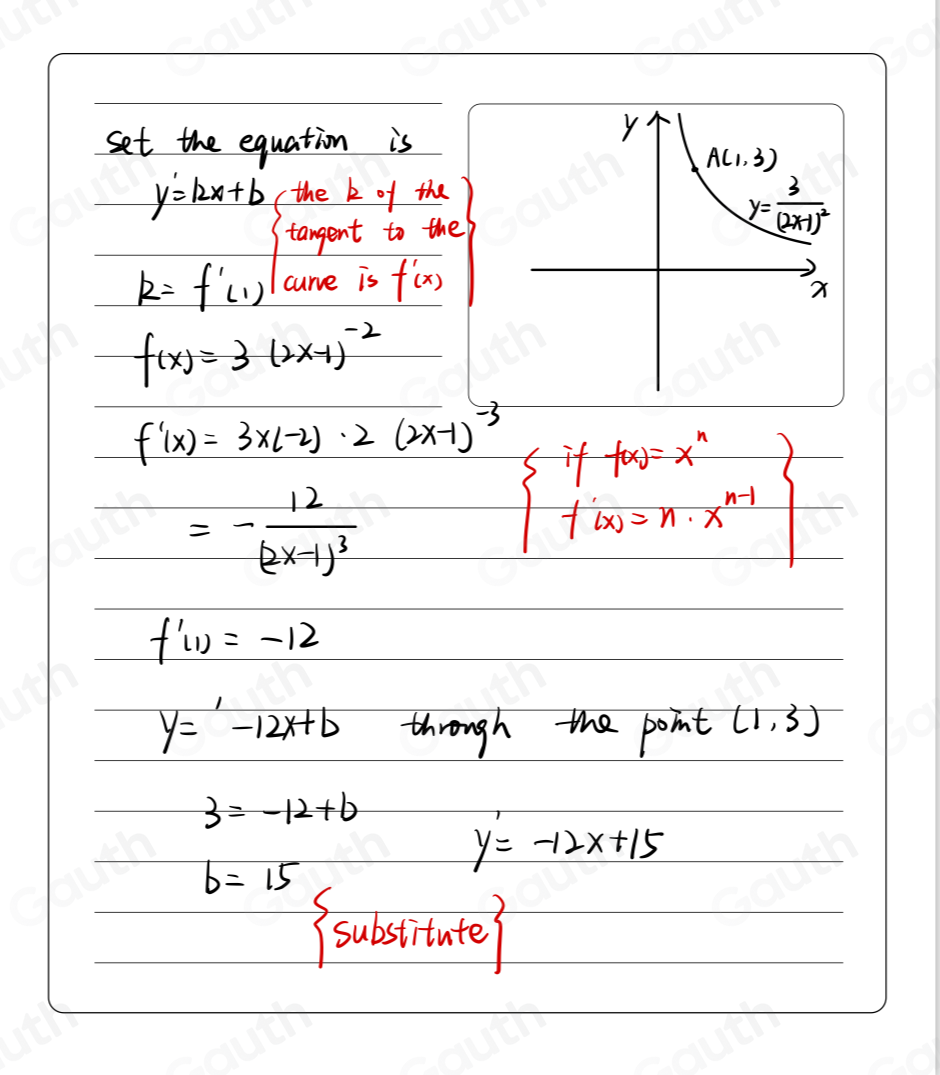 set the equation is
y'=kx+b {the k of the
tangent to the
curve is f'(x)}
k= f'(1)
f(x)= 3 (2x-1)^-2
f'(x)= 3x(-2) ·2 (2x-1)^-3
= - 12/(2x-1)^3
{if f(x)= x^n
f'(x)= n · x^n-1}
f'(1) = -12
y=' -12x+b through the point (1,3)
3= -12+b
b= 15
y'= -12x+15
{substitute}
y
A(1,3)
y= 3/(2x-1)^2
x
Gauth